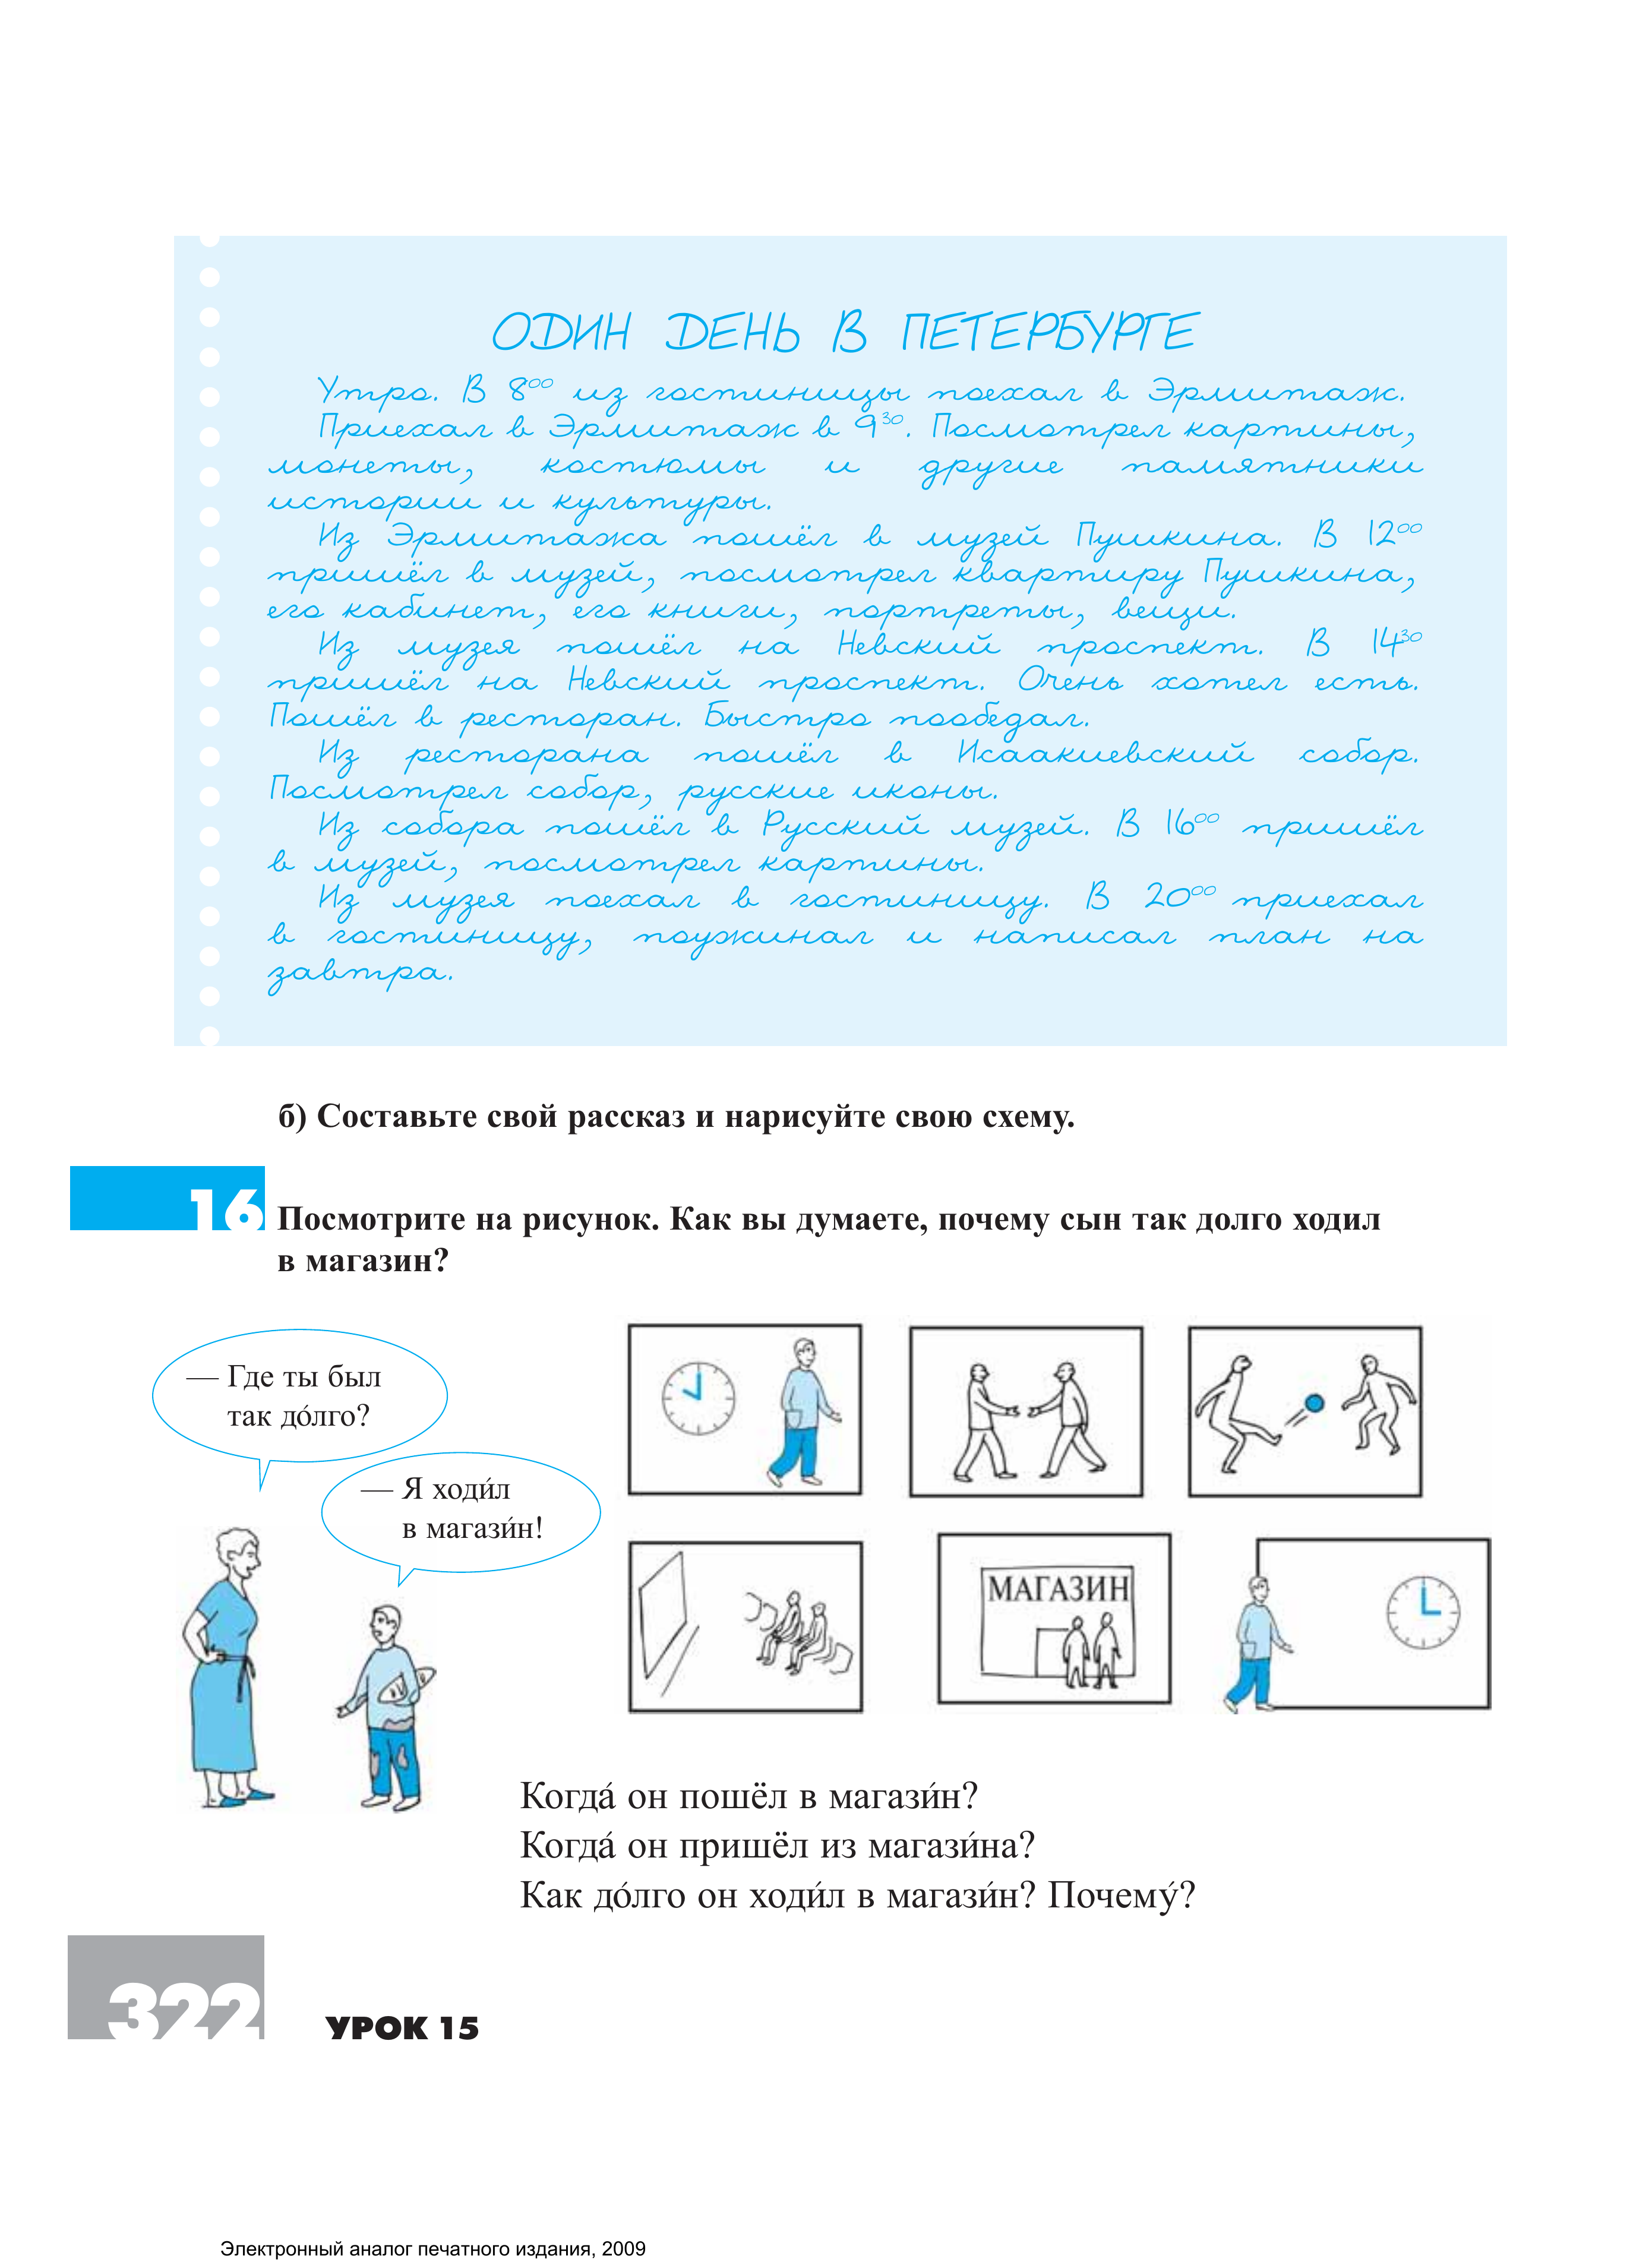 ОДИН ДЕНЬ В ПЕТЕРБУРГЕ
Утро. В 8⁰⁰ из гостиницы поехал в Эрмитаж.
Приехал в Эрмитаж в 9³⁰. Посмотрел картины,
монеты, костюмы и другие памятники
истории и культуры.
Из Эрмитажа пошёл в музей Пушкина. В 12⁰⁰
пришёл в музей, посмотрел квартиру Пушкина,
его кабинет, его книги, портреты, вещи.
Из музея пошёл на Невский проспект. В 14³⁰
пришёл на Невский проспект. Очень хотел есть.
Пошёл в ресторан. Быстро пообедал.
Из ресторана пошёл в Исаакиевский собор.
Посмотрел собор, русские иконы.
Из собора пошёл в Русский музей. В 16⁰⁰ пришёл
в музей, посмотрел картины.
Из музея поехал в гостиницу. В 20⁰⁰ приехал
в гостиницу, поужинал и написал план на
завтра.
б) Составьте свой рассказ и нарисуйте свою схему.
16 Посмотрите на рисунок. Как вы думаете, почему сын так долго ходил
в магазин?
— Где ты был
так до́лго?
— Я ходи́л
в магази́н!
МАГАЗИН
Когда́ он пошёл в магази́н?
Когда́ он пришёл из магази́на?
Как до́лго он ходи́л в магази́н? Почему́?
322 УРОК 15
Электронный аналог печатного издания, 2009